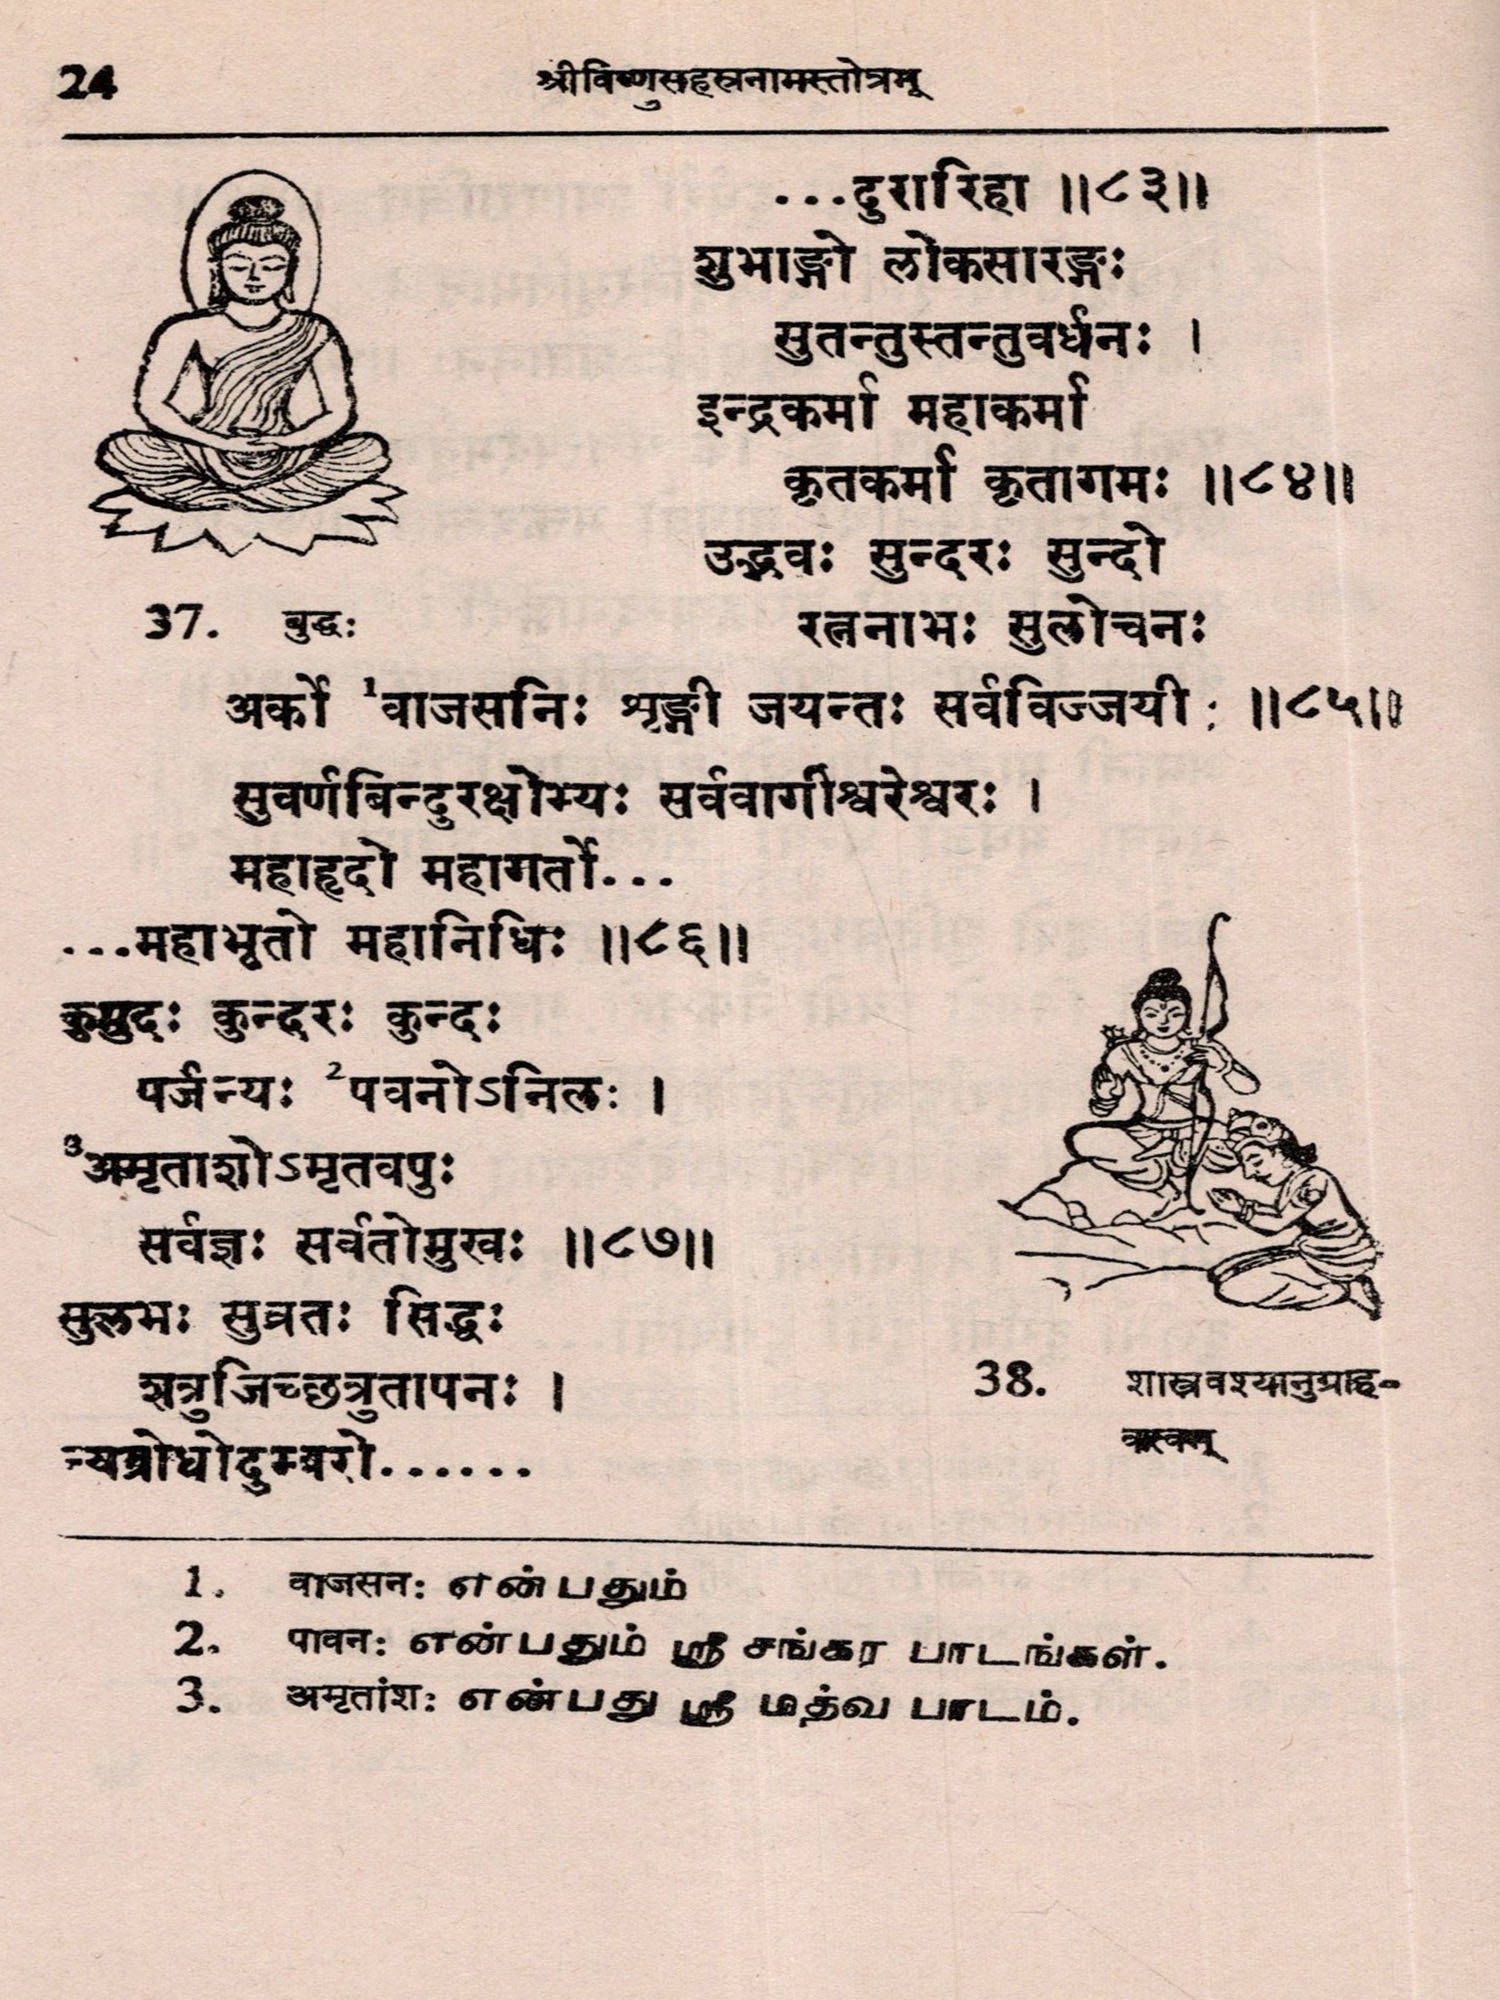 24 श्रीविष्णुसहस्रनामस्तोत्रम्
...दुरारिहा ॥८३॥
शुभाङ्गो लोकसारङ्गः
सुतन्तुस्तन्तुवर्धनः ।
इन्द्रकर्मा महाकर्मा
कृतकर्मा कृतागमः ॥८४॥
उद्भवः सुन्दरः सुन्दो
रत्ननाभः सुलोचनः
37. बुद्धः
अर्को ¹वाजसनिः शृङ्गी जयन्तः सर्वविज्जयी : ॥८५॥
सुवर्णबिन्दुरक्षोभ्यः सर्ववागीश्वरेश्वरः ।
महाहृदो महागर्तो...
...महाभूतो महानिधिः ॥८६॥
कुमुदः कुन्दरः कुन्दः
पर्जन्यः ²पवनोऽनिलः ।
³अमृताशोऽमृतवपुः
सर्वज्ञः सर्वतोमुखः ॥८७॥
सुलभः सुव्रतः सिद्धः
शत्रुजिच्छत्रुतापनः ।
न्यग्रोधोदुम्बरो......
38. शास्त्रवश्यानुग्राह-
कत्वम्
1. वाजसनः என்பதும்
2. पावनः என்பதும் ஸ்ரீ சங்கர பாடங்கள்.
3. अमृतांशः என்பது ஸ்ரீ மத்வ பாடம்.